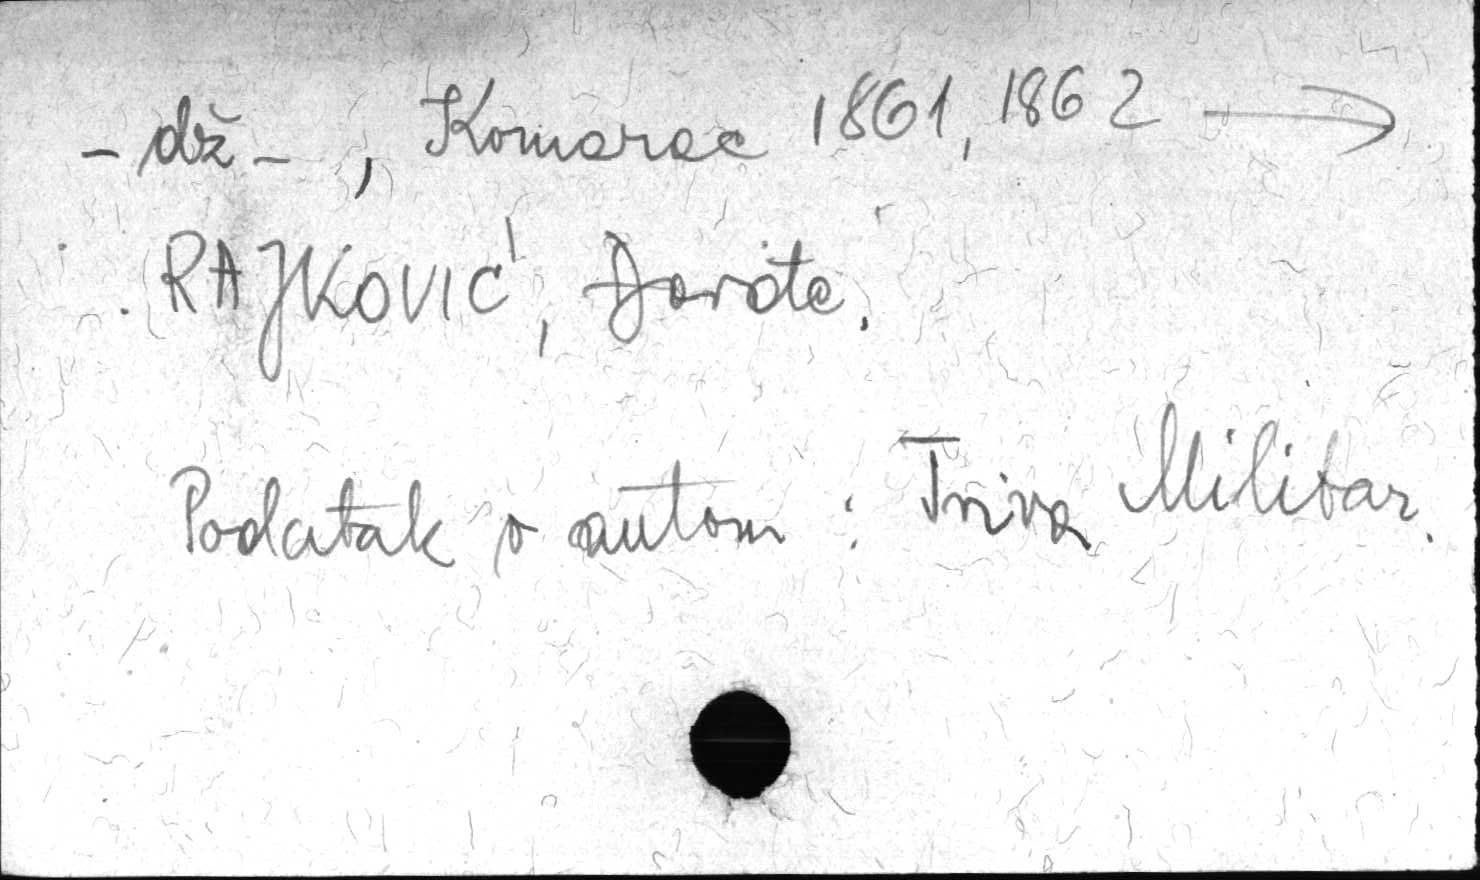 - dž - , Komarac 1861, 1862 →
RAJKOVIĆ, Đorđe.
Podatak o autom : Triva Militar.